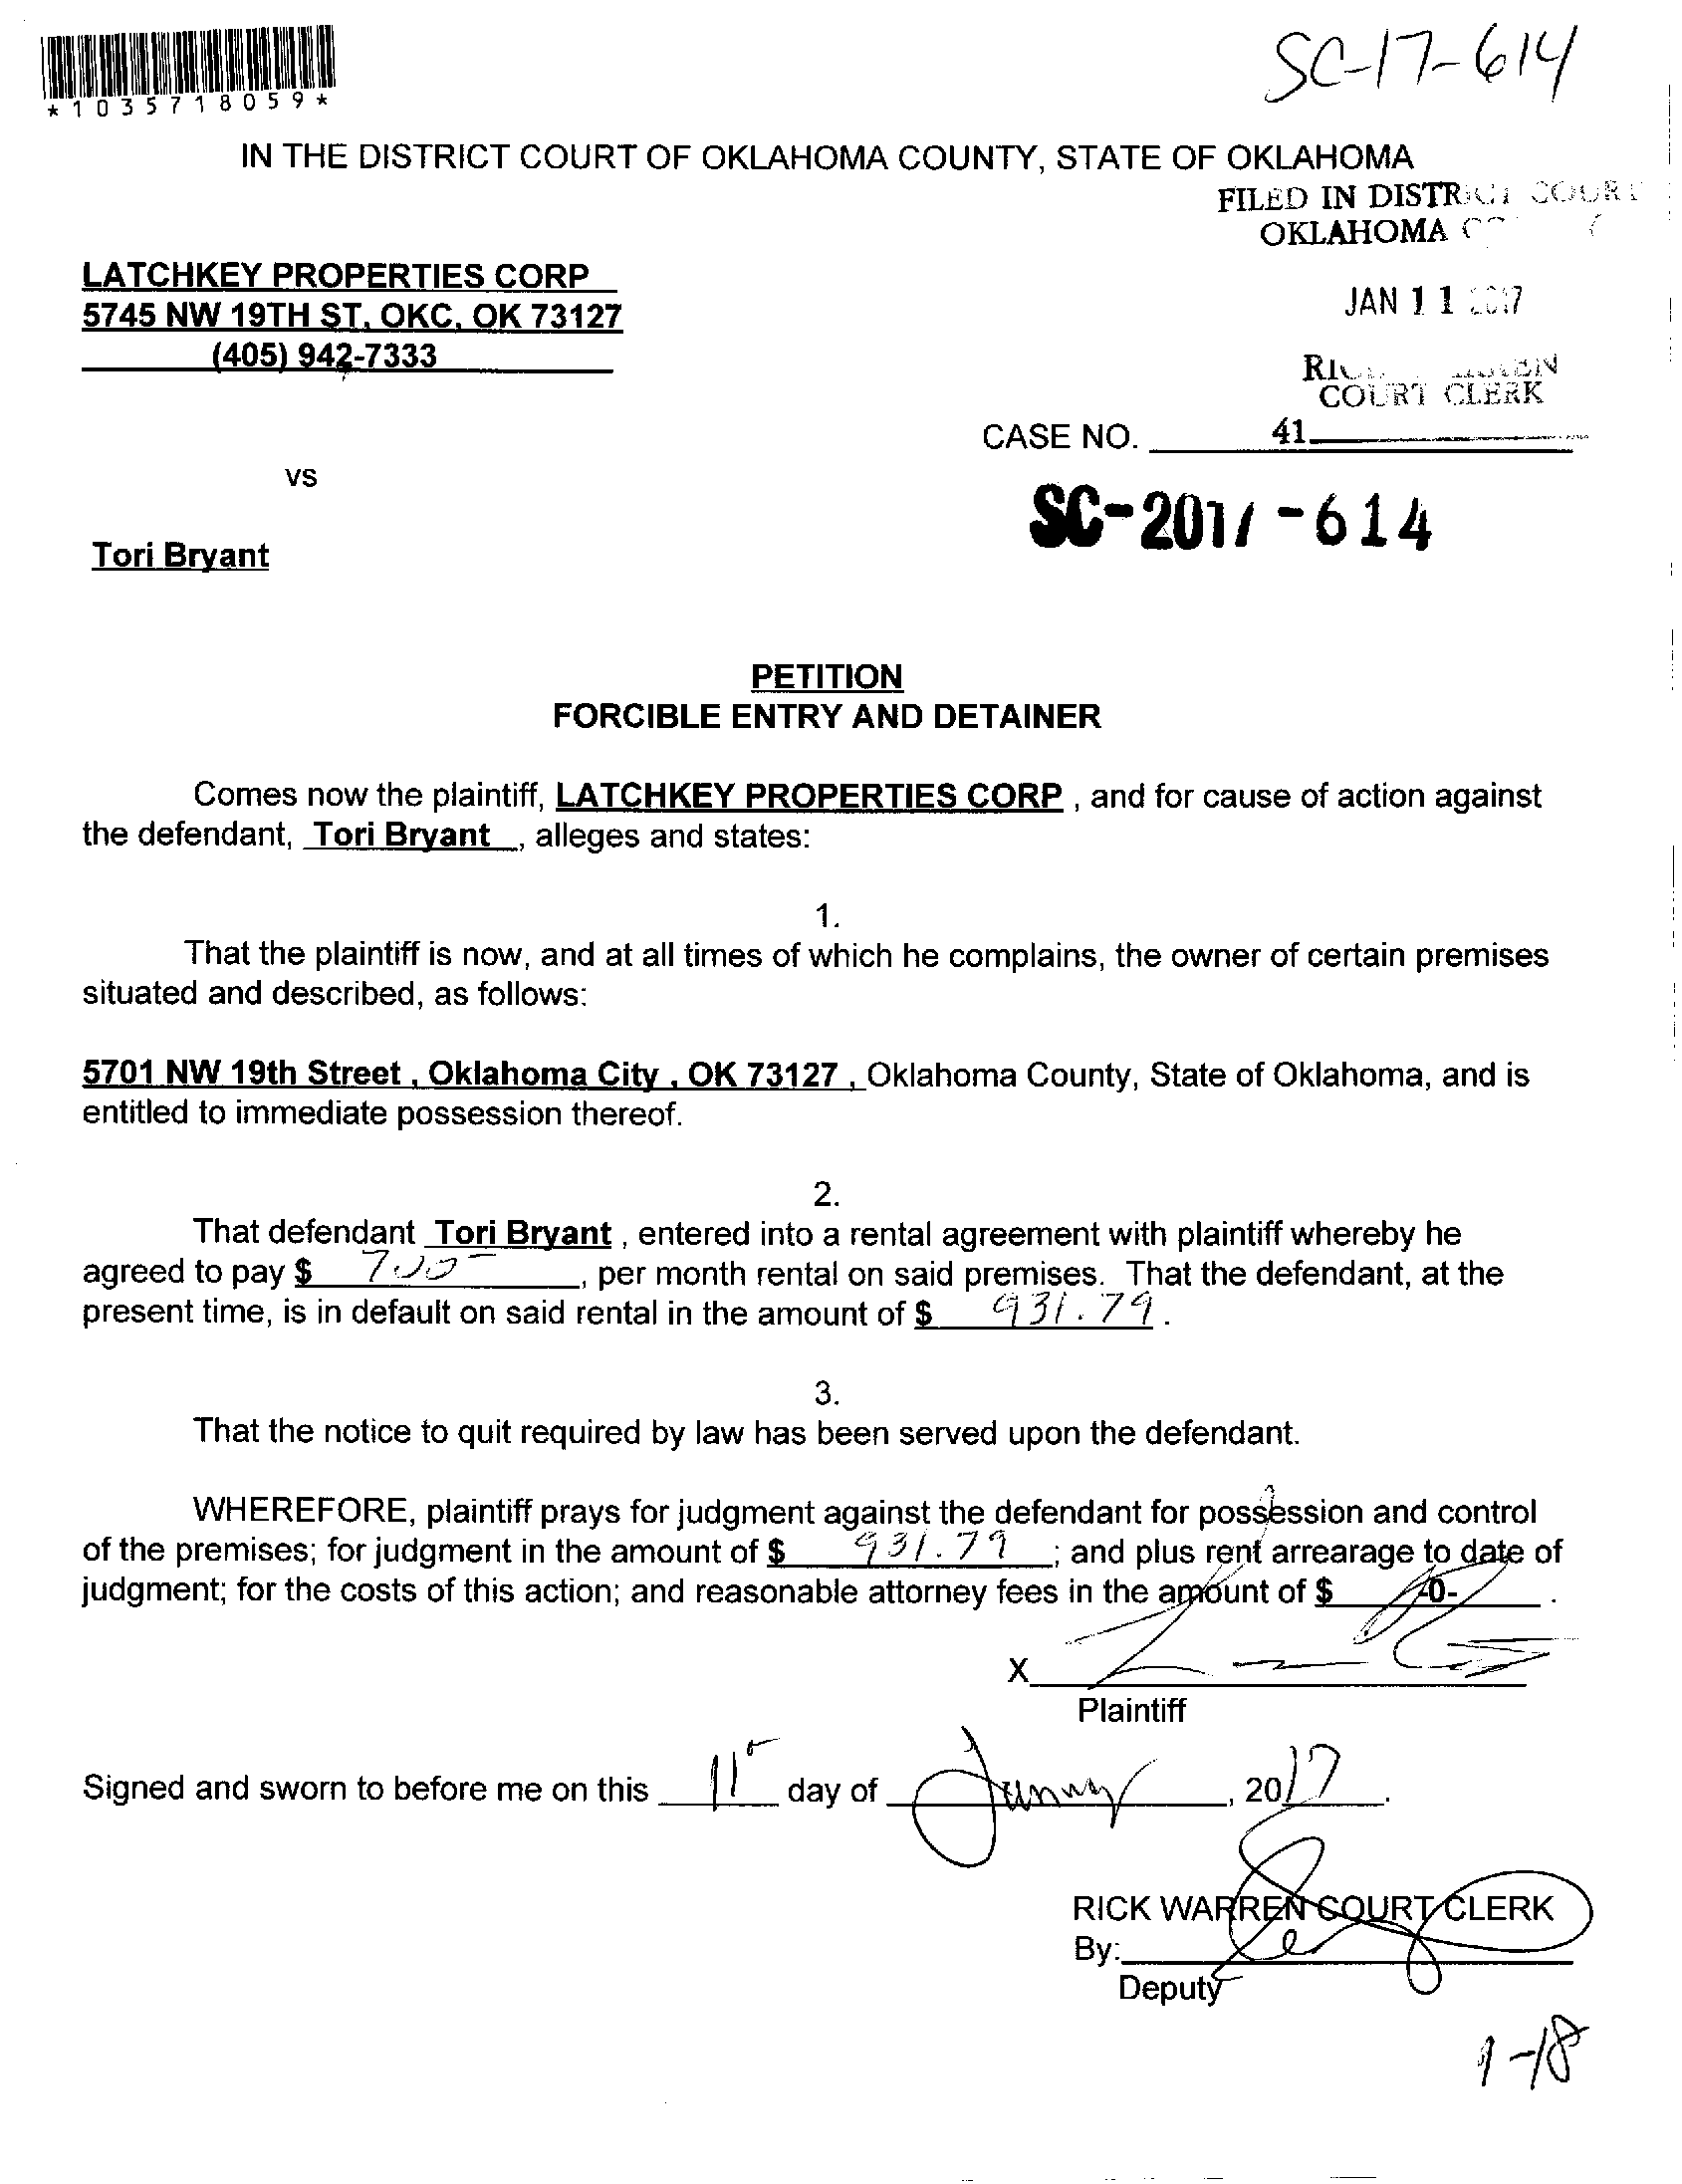 SC-17-614
*1035718059*
IN THE DISTRICT COURT OF OKLAHOMA COUNTY, STATE OF OKLAHOMA
FILED IN DISTRICT COURT
OKLAHOMA
LATCHKEY PROPERTIES CORP
5745 NW 19TH ST, OKC, OK 73127
(405) 942-7333
JAN 11 2017
COURT CLERK
CASE NO. 41
vs
SC-2017-614
Tori Bryant
PETITION
FORCIBLE ENTRY AND DETAINER
Comes now the plaintiff, LATCHKEY PROPERTIES CORP , and for cause of action against
the defendant, Tori Bryant , alleges and states:
1.
That the plaintiff is now, and at all times of which he complains, the owner of certain premises
situated and described, as follows:
5701 NW 19th Street , Oklahoma City , OK 73127 , Oklahoma County, State of Oklahoma, and is
entitled to immediate possession thereof.
2.
That defendant Tori Bryant , entered into a rental agreement with plaintiff whereby he
agreed to pay $ 700- , per month rental on said premises. That the defendant, at the
present time, is in default on said rental in the amount of $ 931.79 .
3.
That the notice to quit required by law has been served upon the defendant.
WHEREFORE, plaintiff prays for judgment against the defendant for possession and control
of the premises; for judgment in the amount of $ 931.79 ; and plus rent arrearage to date of
judgment; for the costs of this action; and reasonable attorney fees in the amount of $ -0- .
X
Plaintiff
Signed and sworn to before me on this 11 day of January , 2017.
RICK WARREN COURT CLERK
By:
Deputy
1-18